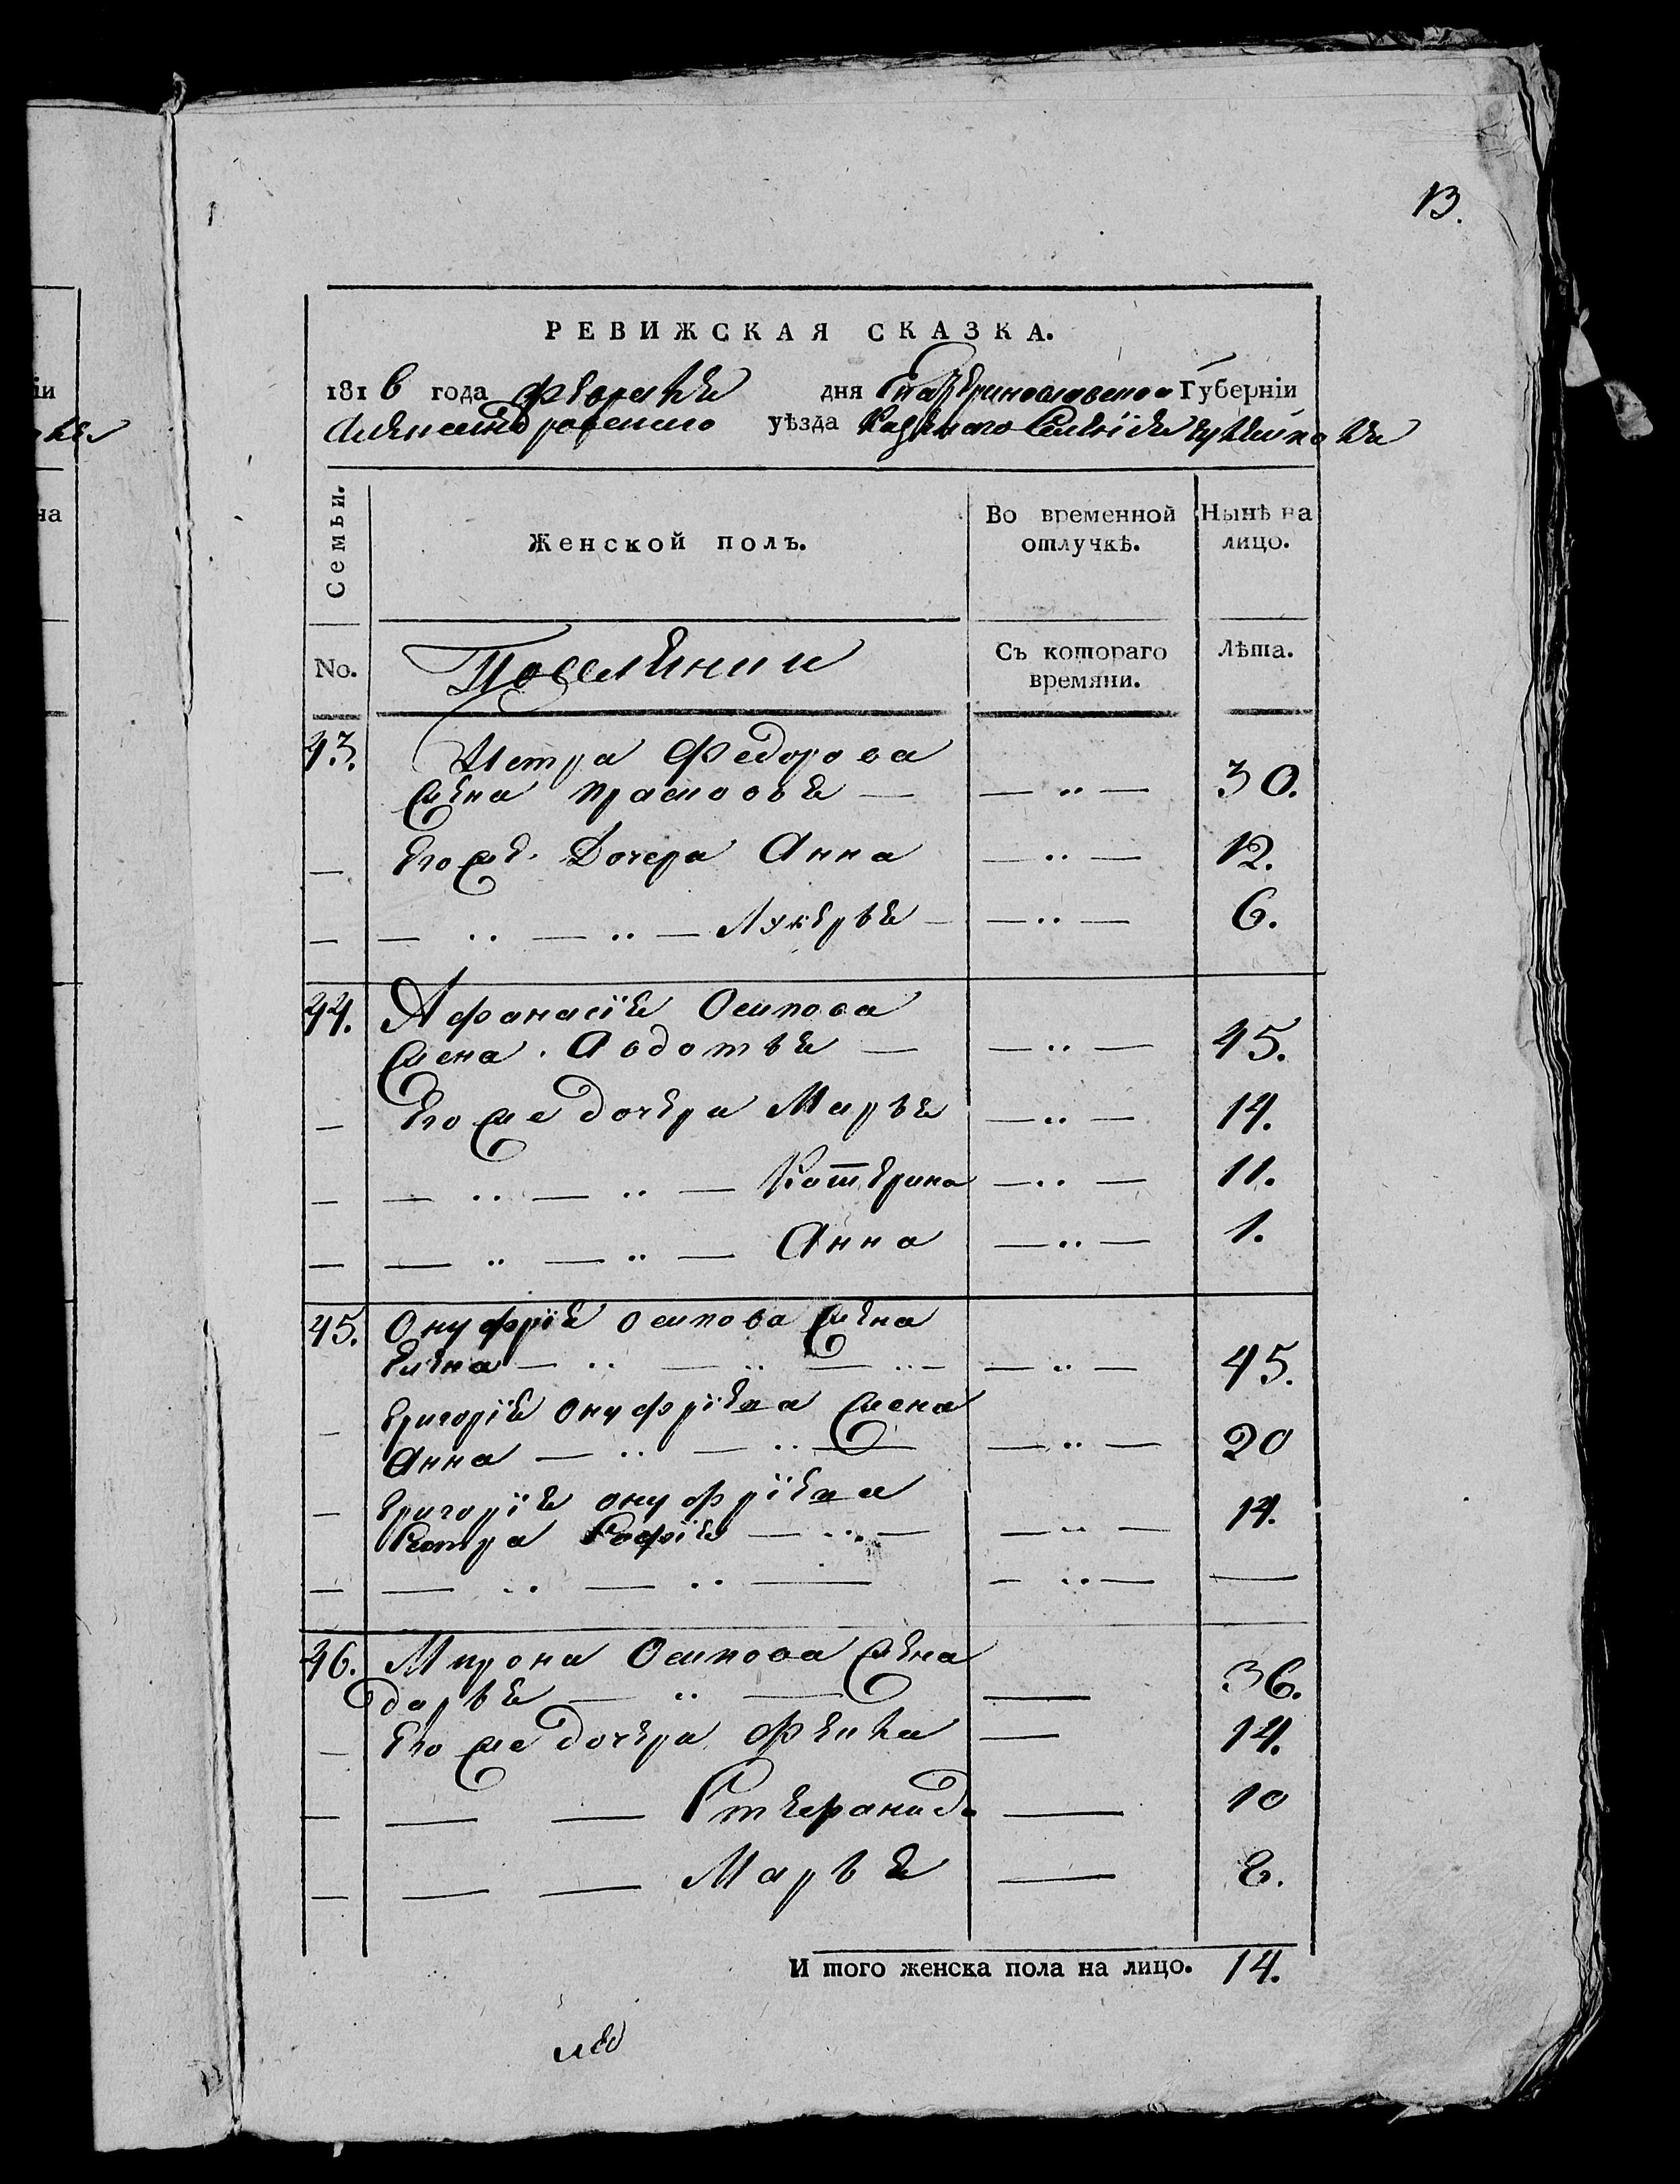 13.
РЕВИЖСКАЯ СКАЗКА.
1816 года февраля дня Екатеринославской Губерніи
Александровского уѣзда Казенного Селенія
Семьи.
Женской полъ.
Во временной отлучкѣ.
Нынѣ на лицо.
No.
Поселянии
Съ котораго времяни.
Лѣта.
43. Петра Федорова
жена прасковья — — " — 30.
— его же Дочера Анна — " — 12.
— — " — " — Лукерья — — " — 6.
44. Афанасія Осипова
жена Авдотья — — " — 45.
— его же дочера Марья — " — 14.
— — " — " — Катерина — " — 11.
— — " — " — Анна — " — 1.
45. Онуфрія осипова жена
елена — " — " — " — — " — 45.
— григорія онуфріева жена
Анна — " — " — — " — 20
— григорія онуфріева
сестра Софія — " — — " — 14.
— — " — " — — " — —
46. Мирона Осипова жена
дарья — " — — 36.
— его же дочера фекла — 14.
— — — Степанида — 10
— — — Марья — 8.
И того женска пола на лицо. 14.